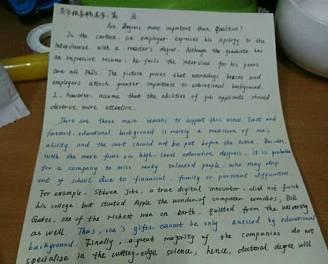 Are Degrees more important than Qualities?
In the cartoon, an employer expresses his apology to the
interviewee with a master's degree. Although the graduate has
an impressive resume, he fails the interview for his peers
are all PhDs. The picture proves that nowadays bosses and
employers attach greater importance to educational background.
I, however, assume that the abilities of job applicants should
deserve more attention.
There are three main reasons to support this view. First and
foremost, educational background is merely a measure of one's
ability, and the cart should not be put before the horse. Besides,
with the mere focus on high-level education degrees, it is probable
for a company to miss many talented people, who may drop
out of school due to financial, family or personal difficulties.
For example, Steven Jobs, a true digital innovator, did not finish
his college but started Apple the wonder of computer market, Bill
Gates, one of the richest man on earth, quitted from the university
as well. Thus, one's gifts cannot be only assessed by educational
background. Finally, a great majority of the companies do not
specialize in the cutting-edge science, hence, doctoral degree will